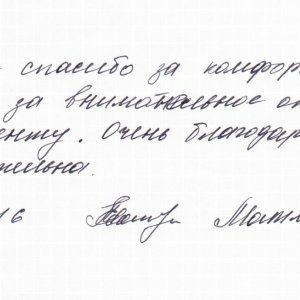 спасибо за комфор
за внимательное от
енту. Очень благодар
тельна.
16